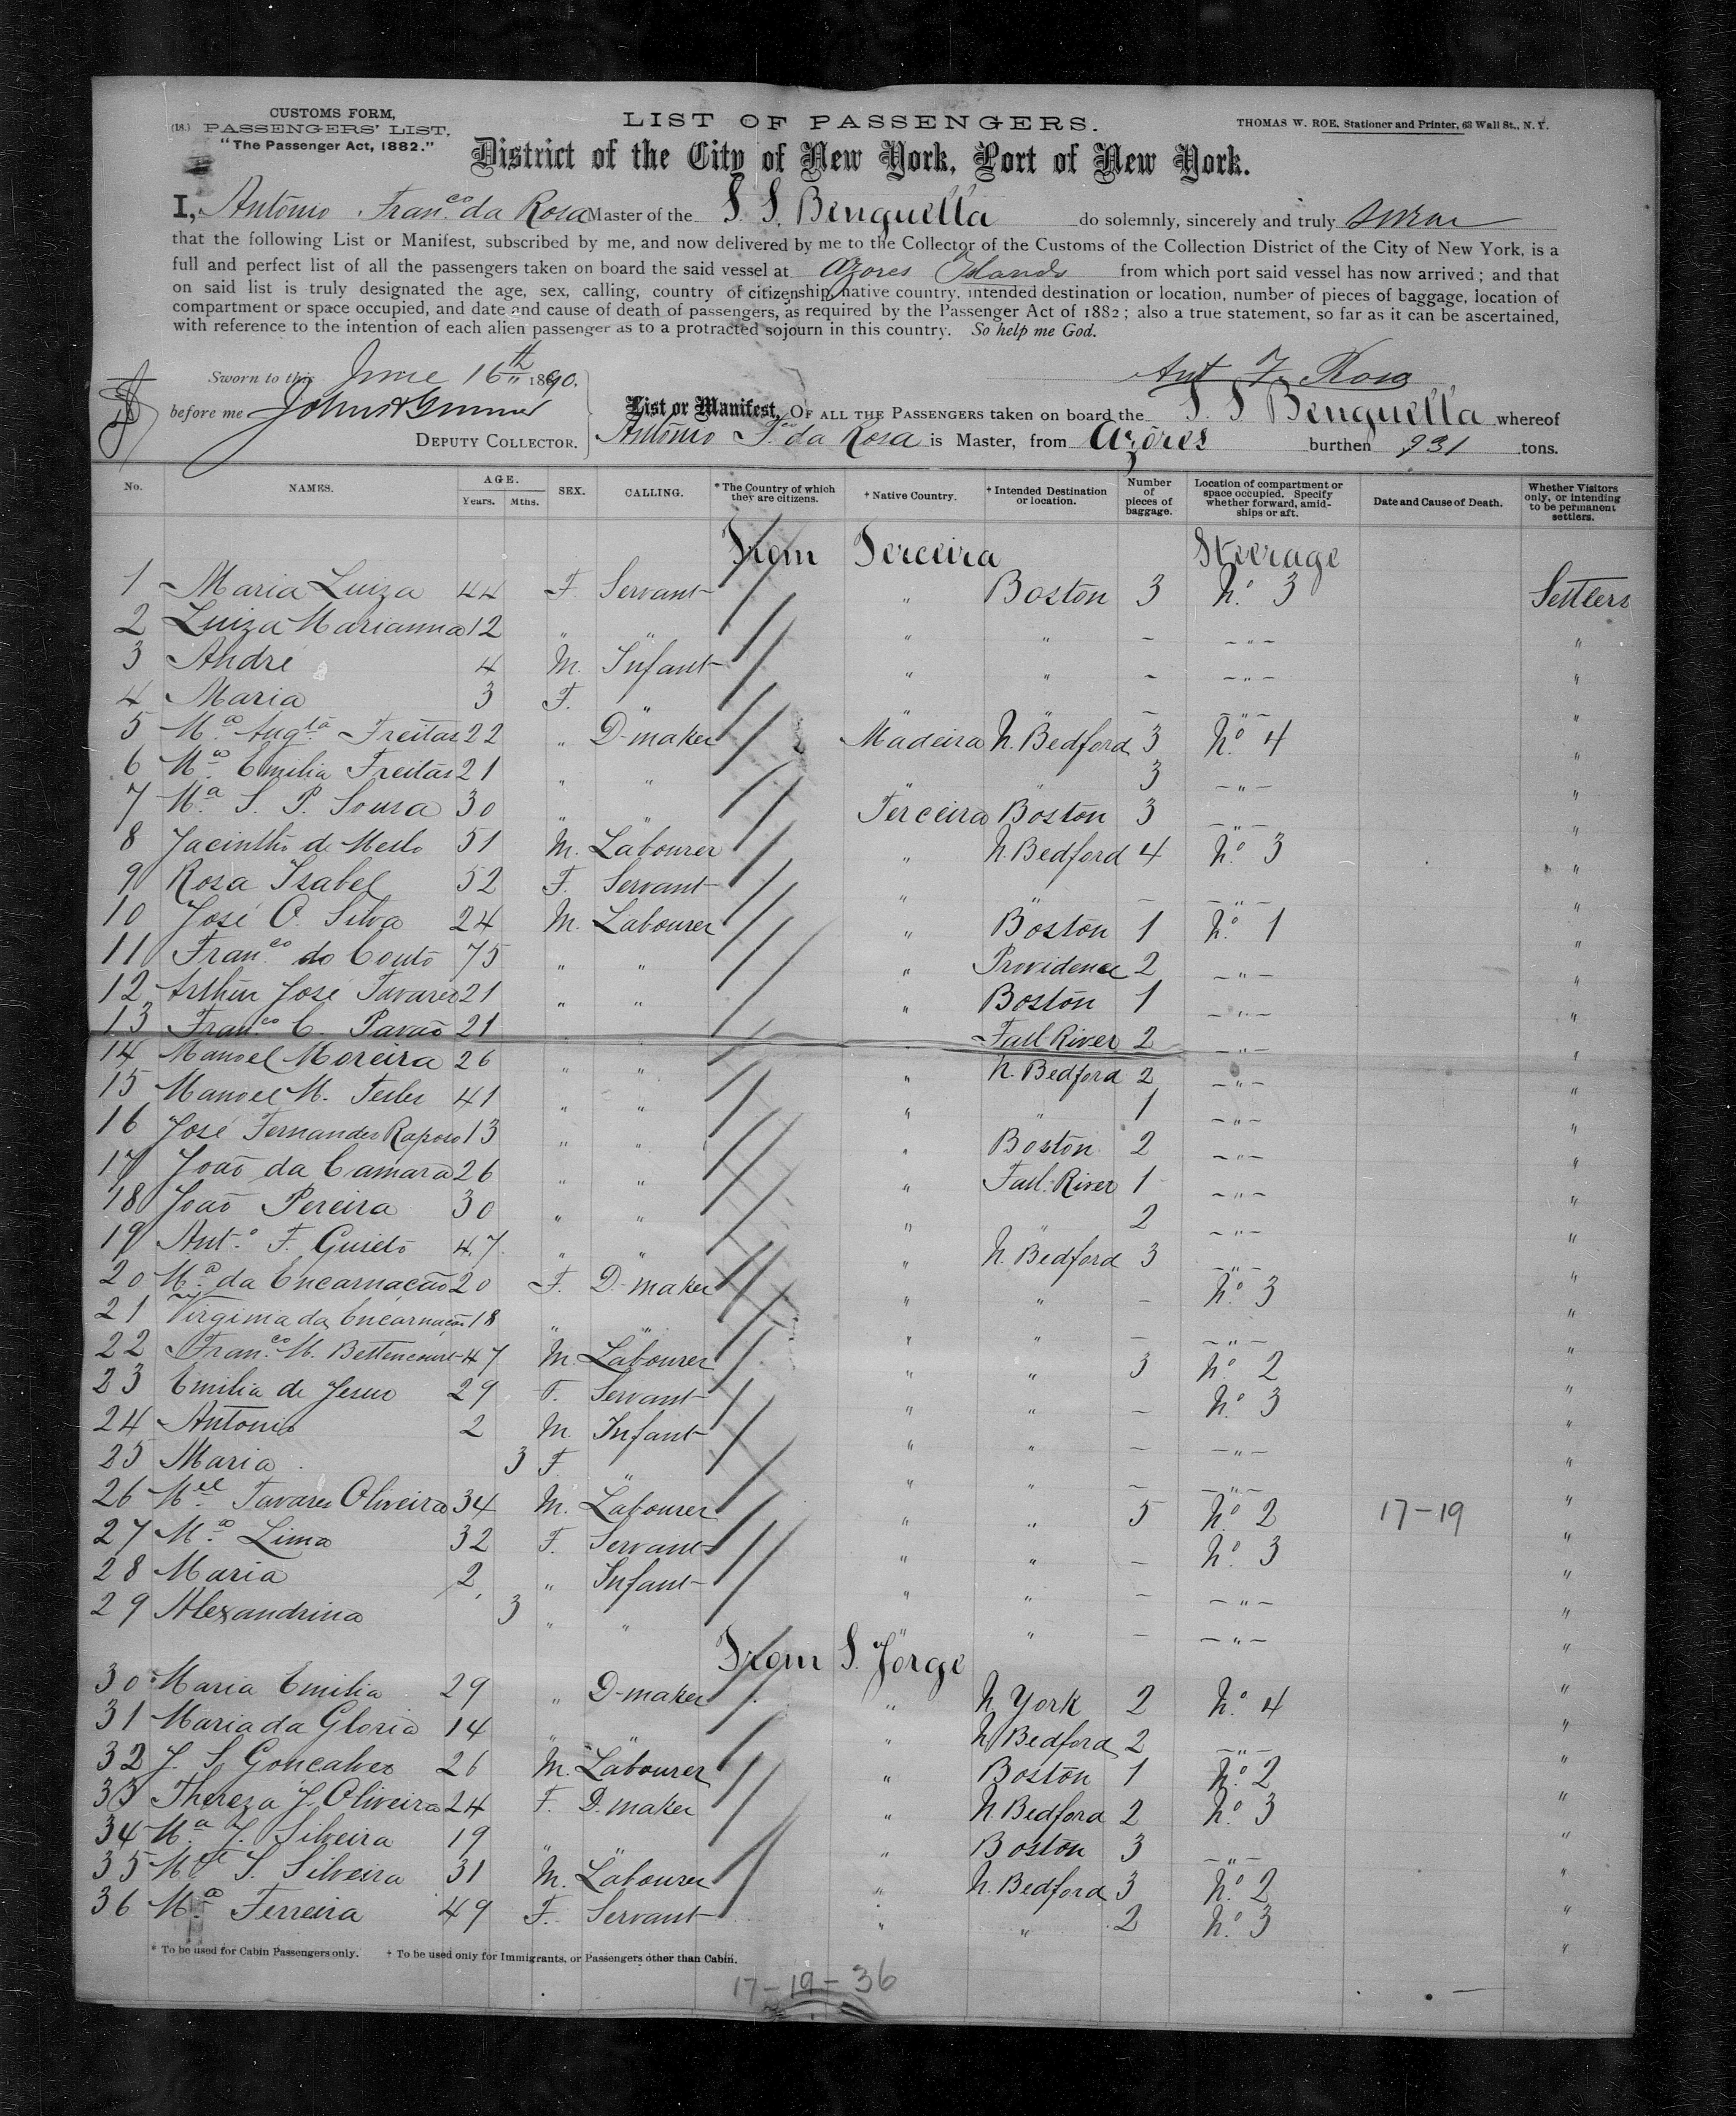 CUSTOMS FORM,
(18.) PASSENGERS' LIST,
"The Passenger Act, 1882."
LIST OF PASSENGERS.
THOMAS W. ROE, Stationer and Printer, 63 Wall St., N. Y.
District of the City of New York, Port of New York.
I, Antonio Fran.co da Rosa Master of the S. S. Benguella do solemnly, sincerely and truly swear
that the following List or Manifest, subscribed by me, and now delivered by me to the Collector of the Customs of the Collection District of the City of New York, is a
full and perfect list of all the passengers taken on board the said vessel at Azores Islands from which port said vessel has now arrived; and that
on said list is truly designated the age, sex, calling, country of citizenship, native country, intended destination or location, number of pieces of baggage, location of
compartment or space occupied, and date and cause of death of passengers, as required by the Passenger Act of 1882; also a true statement, so far as it can be ascertained,
with reference to the intention of each alien passenger as to a protracted sojourn in this country. So help me God.
Sworn to this June 16th 1890,
Ant F. Rosa
before me
DEPUTY COLLECTOR.
List or Manifest, OF ALL THE PASSENGERS taken on board the S. S Benguella whereof
Antonio F.co da Rosa is Master, from Azores burthen 931 tons.
No. NAMES. AGE. Years. Mths. SEX. CALLING. * The Country of which they are citizens. † Native Country. † Intended Destination or location. Number of pieces of baggage. Location of compartment or space occupied. Specify whether forward, amidships or aft. Date and Cause of Death. Whether Visitors only, or intending to be permanent settlers.
From Terceira Steerage
1 Maria Luiza 44 F. Servant " Boston 3 No. 3 Settlers
2 Luiza Marianna 12 " " " " - - " - "
3 André 4 M. Infant " " - - " - "
4 Maria 3 F. " " " - - " - "
5 M.a Aug.ta Freitas 22 " D-maker Madeira N. Bedford 3 No. 4 "
6 M.a Emilia Freitas 21 " " " " 3 - " - "
7 M.a S. P. Sousa 30 " " Terceira Boston 3 - " - "
8 Jacintho de Mello 51 M. Labourer " N. Bedford 4 No. 3 "
9 Rosa Isabel 52 F. Servant " " - - " - "
10 José O. Silva 24 M. Labourer " Boston 1 No. 1 "
11 Fran.co do Couto 75 " " " Providence 2 - " - "
12 Arthur José Tavares 21 " " " Boston 1 - " - "
13 Fran.co C. Pavão 21 Fall River 2 - " - "
14 Manoel Moreira 26 " " " N. Bedford 2 - " - "
15 Manoel M. 41 " " " " 1 - " - "
16 José Fernandes Raposo 13 " " " Boston 2 - " - "
17 João da Camara 26 " " " Fall River 1 - " - "
18 João Pereira 30 " " " " 2 - " - "
19 Ant.o F. 47 " " " N. Bedford 3 - " - "
20 M.a da Encarnação 20 F. D-maker " " - No. 3 "
21 Virginia da Encarnação 18 " " " " - - " - "
22 Fran.co M. Bettencourt 47 M. Labourer " " 3 No. 2 "
23 Emilia de Jesus 29 F. Servant " " - No. 3 "
24 Antonio 2 M. Infant " " - - " - "
25 Maria 3 F. " " " - - " - "
26 M.el Tavares Oliveira 34 M. Labourer " " 5 No. 2 17-19 "
27 M.a Lima 32 F. Servant " " - No. 3 "
28 Maria 2 " Infant " " - - " - "
29 Alexandrina 3 " " " " - - " - "
From S. Jorge
30 Maria Emilia 29 " D-maker " N. York 2 No. 4 "
31 Maria da Gloria 14 " " " N. Bedford 2 - " - "
32 J. S. Goncalves 26 M. Labourer " Boston 1 No. 2 "
33 Thereza J. Oliveira 24 F. D. maker " N. Bedford 2 No. 3 "
34 M.a J. Silveira 19 " " " Boston 3 - " - "
35 M.el S. Silveira 31 M. Labourer " N. Bedford 3 No. 2 "
36 M.a Ferreira 49 F. Servant " " 2 No. 3 "
* To be used for Cabin Passengers only. † To be used only for Immigrants, or Passengers other than Cabin.
17-19-36